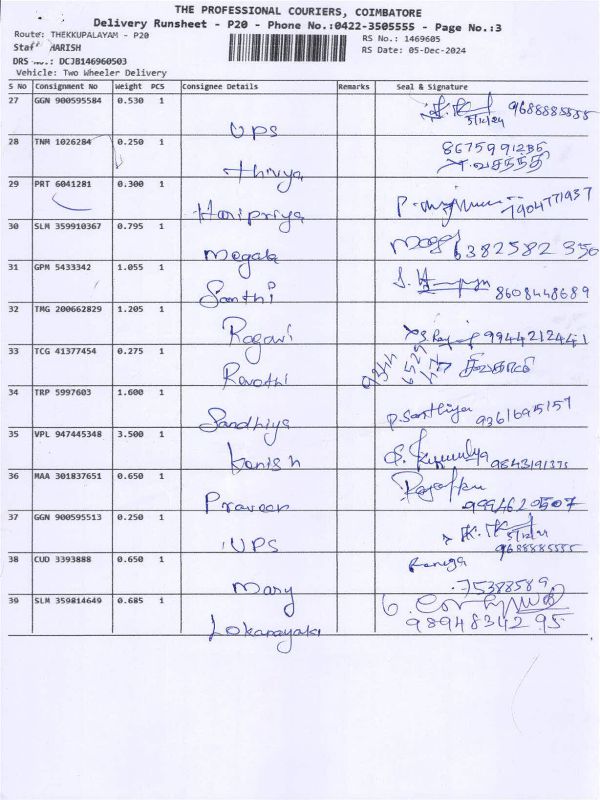 THE PROFESSIONAL COURIERS, COIMBATORE
Delivery Runsheet - P20 - Phone No.:0422-3505555 - Page No.:3
Route: THEKKUPALAYAM - P20
RS No.: 1469605
Staff HARISH
RS Date: 05-Dec-2024
DRS No.: DCJB146960503
Vehicle: Two Wheeler Delivery
S No Consignment No Weight PCS Consignee Details Remarks Seal & Signature
27 GGN 900595584 0.530 1 UPS 9688885555 5/12/24
28 TNM 1026284 0.250 1 Thivya 8675991235 வசந்தி
29 PRT 6041281 0.300 1 Haripriya 7904771937
30 SLM 359910367 0.795 1 Megala 6382582350
31 GPM 5433342 1.055 1 Santhi 8608448689
32 TMG 200662829 1.205 1 Ragavi 9944212441
33 TCG 41377454 0.275 1 Revathi
34 TRP 5997603 1.600 1 Sandhiya P.Santhiya 9361695157
35 VPL 947445348 3.500 1 Kanish 9843191375
36 MAA 301837651 0.650 1 Praveen 9994620507
37 GGN 900595513 0.250 1 UPS 5/12/24 9688885555
38 CUD 3393888 0.650 1 Mary 75388589
39 SLM 359814649 0.685 1 Lokanayaki 9894834295